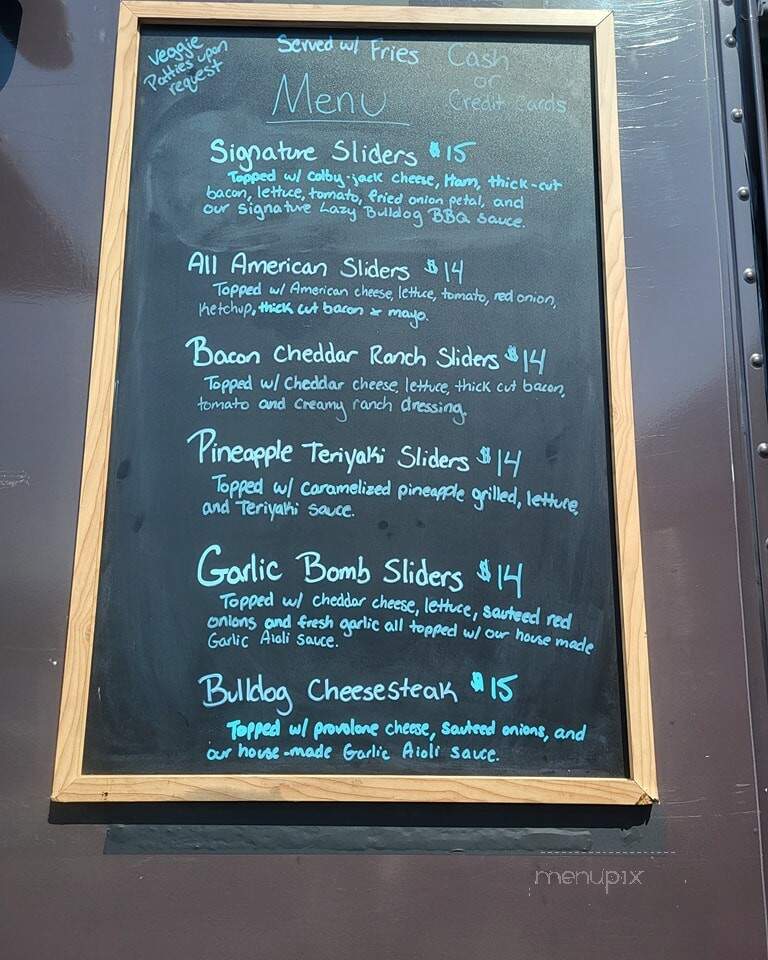 Veggie
Patties upon
request
Served w/ Fries
Cash
or
Credit Cards
Menu
Signature Sliders $15
Topped w/ colby-jack cheese, Ham, thick-cut
bacon, lettuce, tomato, fried onion petal, and
our signature Lazy Bulldog BBQ sauce.
All American Sliders $14
Topped w/ American cheese, lettuce, tomato, red onion,
ketchup, thick cut bacon & mayo.
Bacon Cheddar Ranch Sliders $14
Topped w/ Cheddar cheese, lettuce, thick cut bacon,
tomato and creamy ranch dressing.
Pineapple Teriyaki Sliders $14
Topped w/ caramelized pineapple grilled, lettuce,
and Teriyaki sauce.
Garlic Bomb Sliders $14
Topped w/ cheddar cheese, lettuce, sauteed red
onions and fresh garlic all topped w/ our house made
Garlic Aioli sauce.
Bulldog Cheesesteak $15
Topped w/ provolone cheese, sauteed onions, and
our house-made Garlic Aioli sauce.
menupix